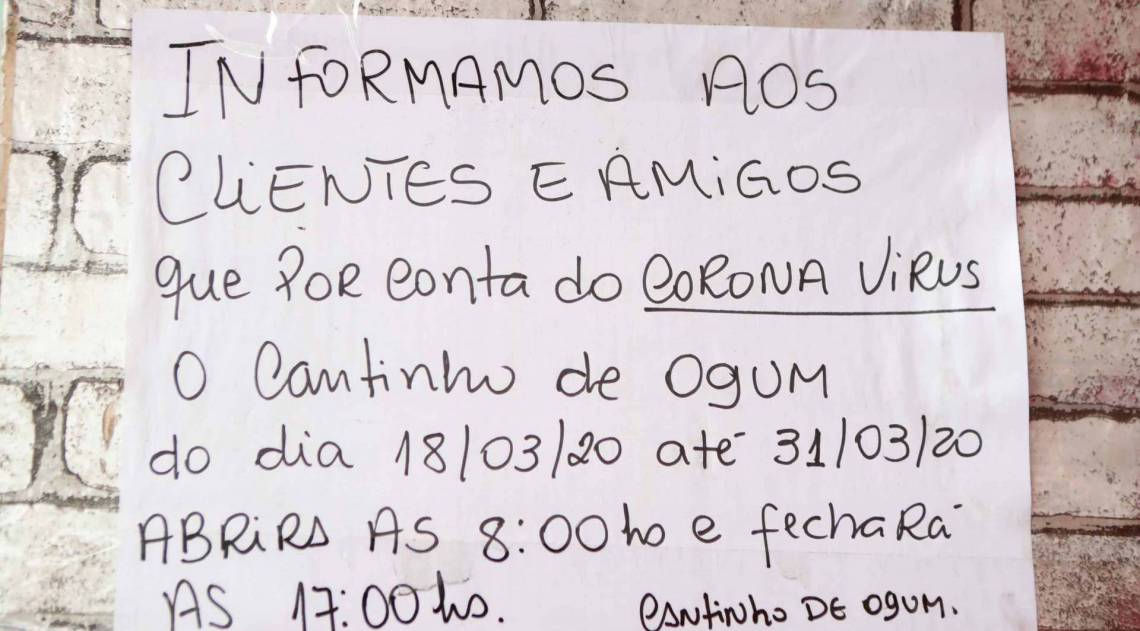 INFORMAMOS AOS
CLiENTES E AMiGOS
que POR conta do CORONA ViRUS
O Cantinho de OgUM
do dia 18/03/20 até 31/03/20
ABRiRA AS 8:00 hs e fechaRá
AS 17:00 hs. Cantinho DE OgUM.